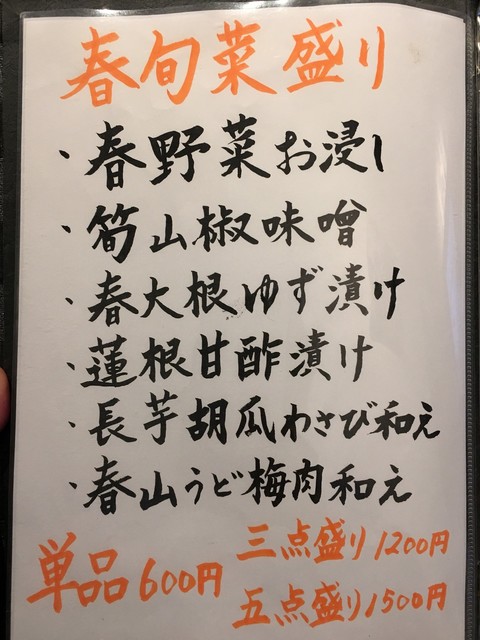 春旬菜盛り
・春野菜お浸し
・筍山椒味噌
・春大根ゆず漬け
・蓮根甘酢漬け
・長芋胡瓜わさび和え
・春山うど梅肉和え
単品600円
三点盛り1200円
五点盛り1500円